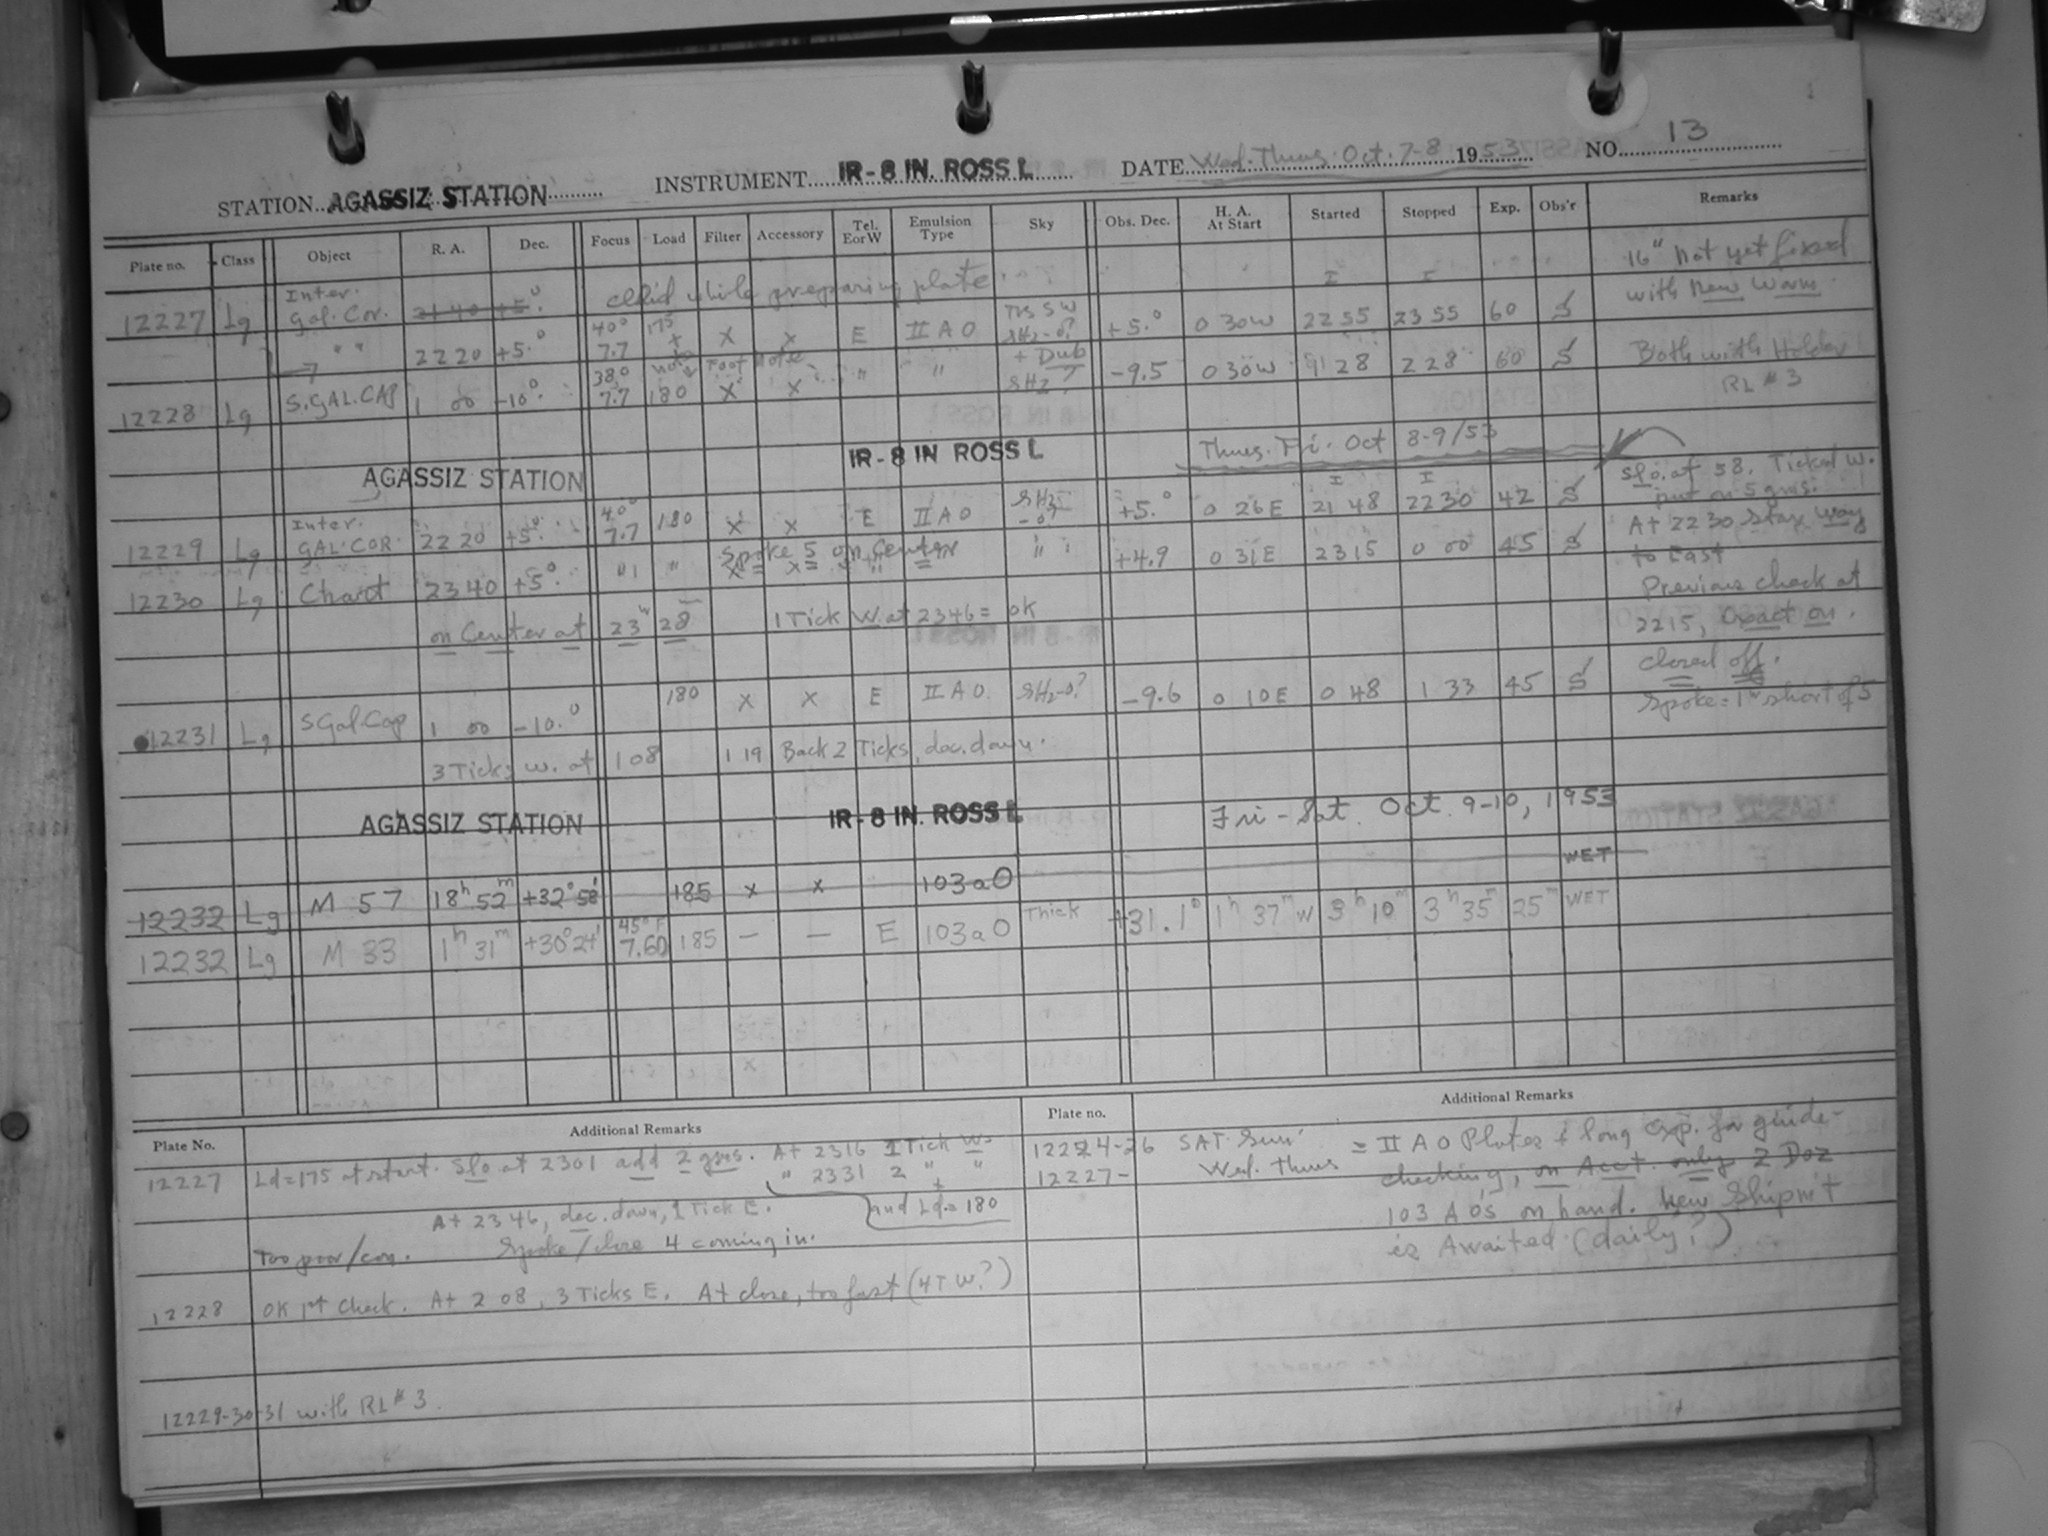 STATION AGASSIZ STATION INSTRUMENT IR-8 IN. ROSS L DATE Wed. Thurs. Oct. 7-8 1953 NO. 13
Plate no. Class Object R. A. Dec. Focus Load Filter Accessory Tel. E or W Emulsion Type Sky Obs. Dec. H. A. At Start Started Stopped Exp. Obs'r Remarks
16" not yet fixed
with new worm
12227 Lg Inter. Gal. Cor. 21 40 +5.°
while preparing plate
" " 22 20 +5.° 40° 7.7 175 x x x E II A O +5.° 0 30W 22 55 23 55 60 S
12228 Lg S. GAL. CAP 1 00 -10.° 38° 7.7 180 x x " " SH2? -9.5 0 30W 1 28 2 28 60 S Both with Holder
RL #3
AGASSIZ STATION IR-8 IN ROSS L Thurs. Fri. Oct 8-9/53
12229 Lg Inter. GAL. COR. 22 20 +5.° 40° 7.7 180 x x E II A O +5.° 0 26E 21 48 22 30 42 S Slo. at 58. Ticked W.
put on 5 gms.
At 2230 Star way
to East
Spoke 5 on Center
12230 Lg Chart 23 40 +5.° " " x x " " " +4.9 0 31E 23 15 0 00 45 S
Previous check at
2215, exact on.
on Center at 23 28 1 Tick W. at 2346 = ok
closed off.
12231 Lg S Gal. Cap 1 00 -10.° 180 x x E II A O. SH2-0? -9.6 0 10E 0 48 1 33 45 S Spoke = 1" short of 5
3 Ticks w. at 1 08 1 19 Back 2 Ticks, dec. down.
AGASSIZ STATION IR-8 IN. ROSS L Fri - Sat. Oct. 9-10, 1953
12232 Lg M 57 18h 52m +32° 58' 185 x x 103aO WET
12232 Lg M 33 1h 31m +30° 24' 45° F 7.60 185 — — E 103aO Thick +31.1° 1h 37m W 3h 10m 3h 35m 25m WET
Plate No. Additional Remarks Plate no. Additional Remarks
12227 Ld=175 at start. Slo at 2301 add 2 gms. At 2316 1 Tick W.
" 2331 2 " "
At 2346, dec. down, 1 Tick E. and Ld = 180
Too poor/con. Spoke/close 4 coming in.
12228 OK 1st check. At 2 08, 3 Ticks E. At close, too fast (4T W.?)
12229-30-31 with RL #3.
12224-26 SAT. Sun = II A O Plates & long exp. for guide-
12227- Wed. Thurs checking, on Acct. only 2 Doz
103 A O's on hand. New Shipm't
is Awaited (daily?)